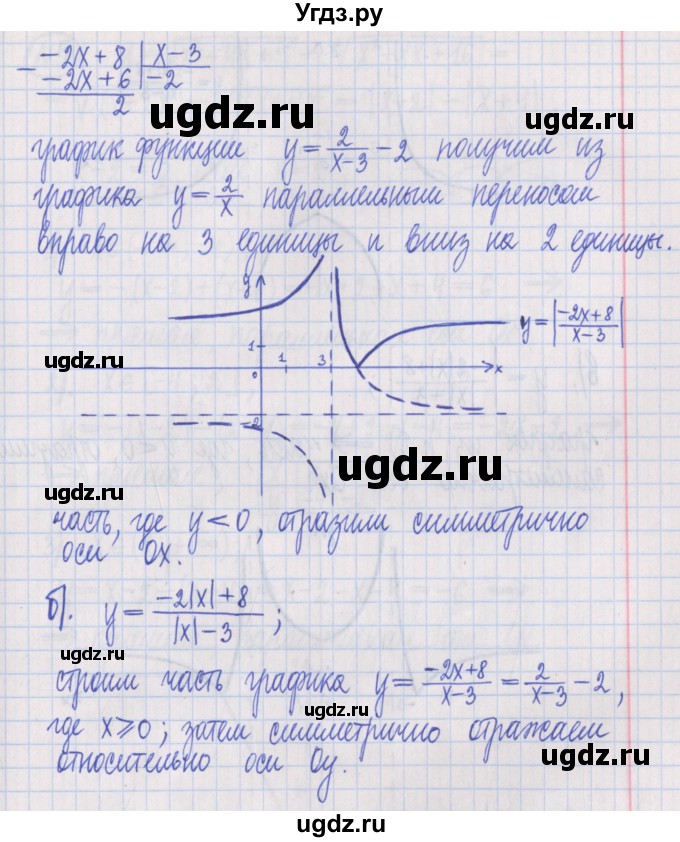 Угдз.ру
-2x+8 | x-3
-
-2x+6 | -2
2
ugdz.ru
график функции y = 2/(x-3) - 2 получим из
графика y = 2/x параллельным переносом
вправо на 3 единицы и вниз на 2 единицы.
ugdz.ru
y
y = |(-2x+8)/(x-3)|
ugdz.ru
1
0 1 3 x
-2
ugdz.ru
ugdz.ru
ugdz.ru
часть, где y < 0, отразили симметрично
оси Ox.
ugdz.ru
б). y = (-2|x|+8)/(|x|-3);
ugdz.ru
строим часть графика y = (-2x+8)/(x-3) = 2/(x-3) - 2,
ugdz.ru
где x ⩾ 0; затем симметрично отражаем
относительно оси Oy.
ugdz.ru
ugdz.ru